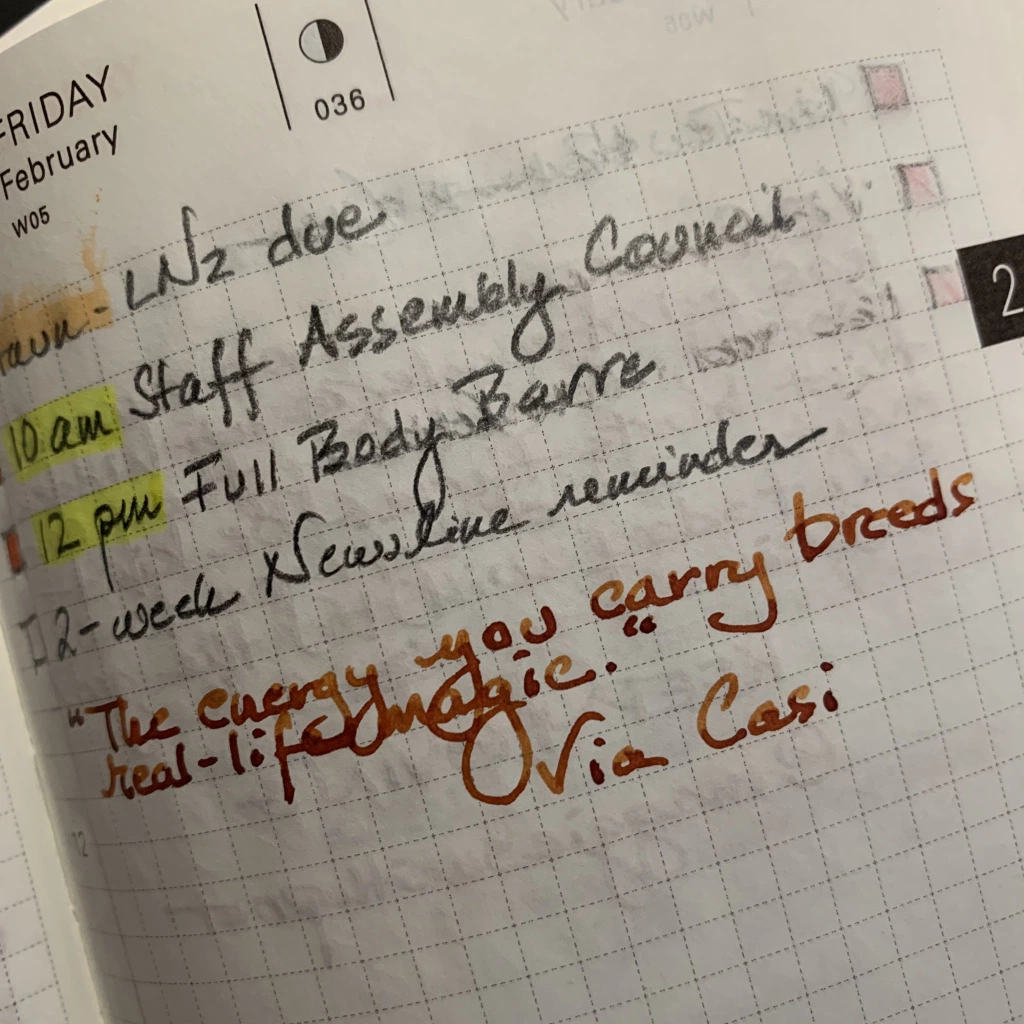 FRIDAY
February
W05
036
2
LN2 due
10 am Staff Assembly Council
12 pm Full Body Barre
2-week Newsline reminder
"The energy you carry breeds
real-life magic."
Via Casi
12